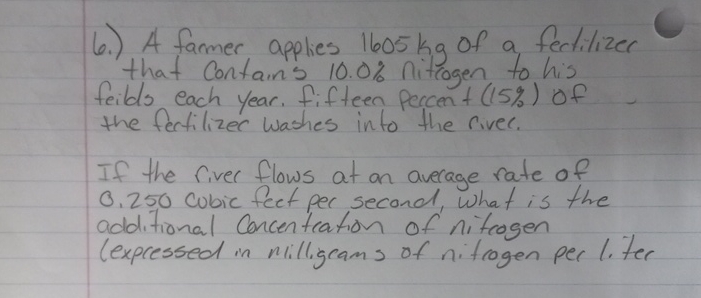 6.) A farmer applies 1605 kg of a fertilizer
that contains 10.0% nitrogen to his
feilds each year. fifteen percent (15%) of
the fertilizer washes into the river.
If the river flows at an average rate of
0.250 cubic feet per second, what is the
additional concentration of nitrogen
(expressed in milligrams of nitrogen per liter